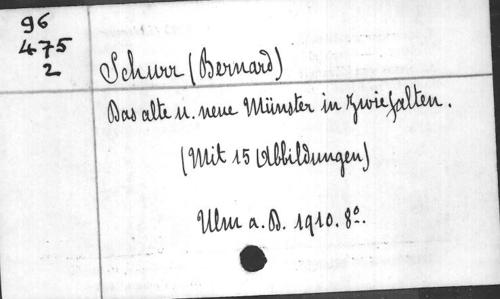 96
475
2
Schurr (Bernard)
Das alte u. neue Münster in Zwiefalten.
(Mit 15 Abbildungen)
Ulm a. D. 1910. 8º.